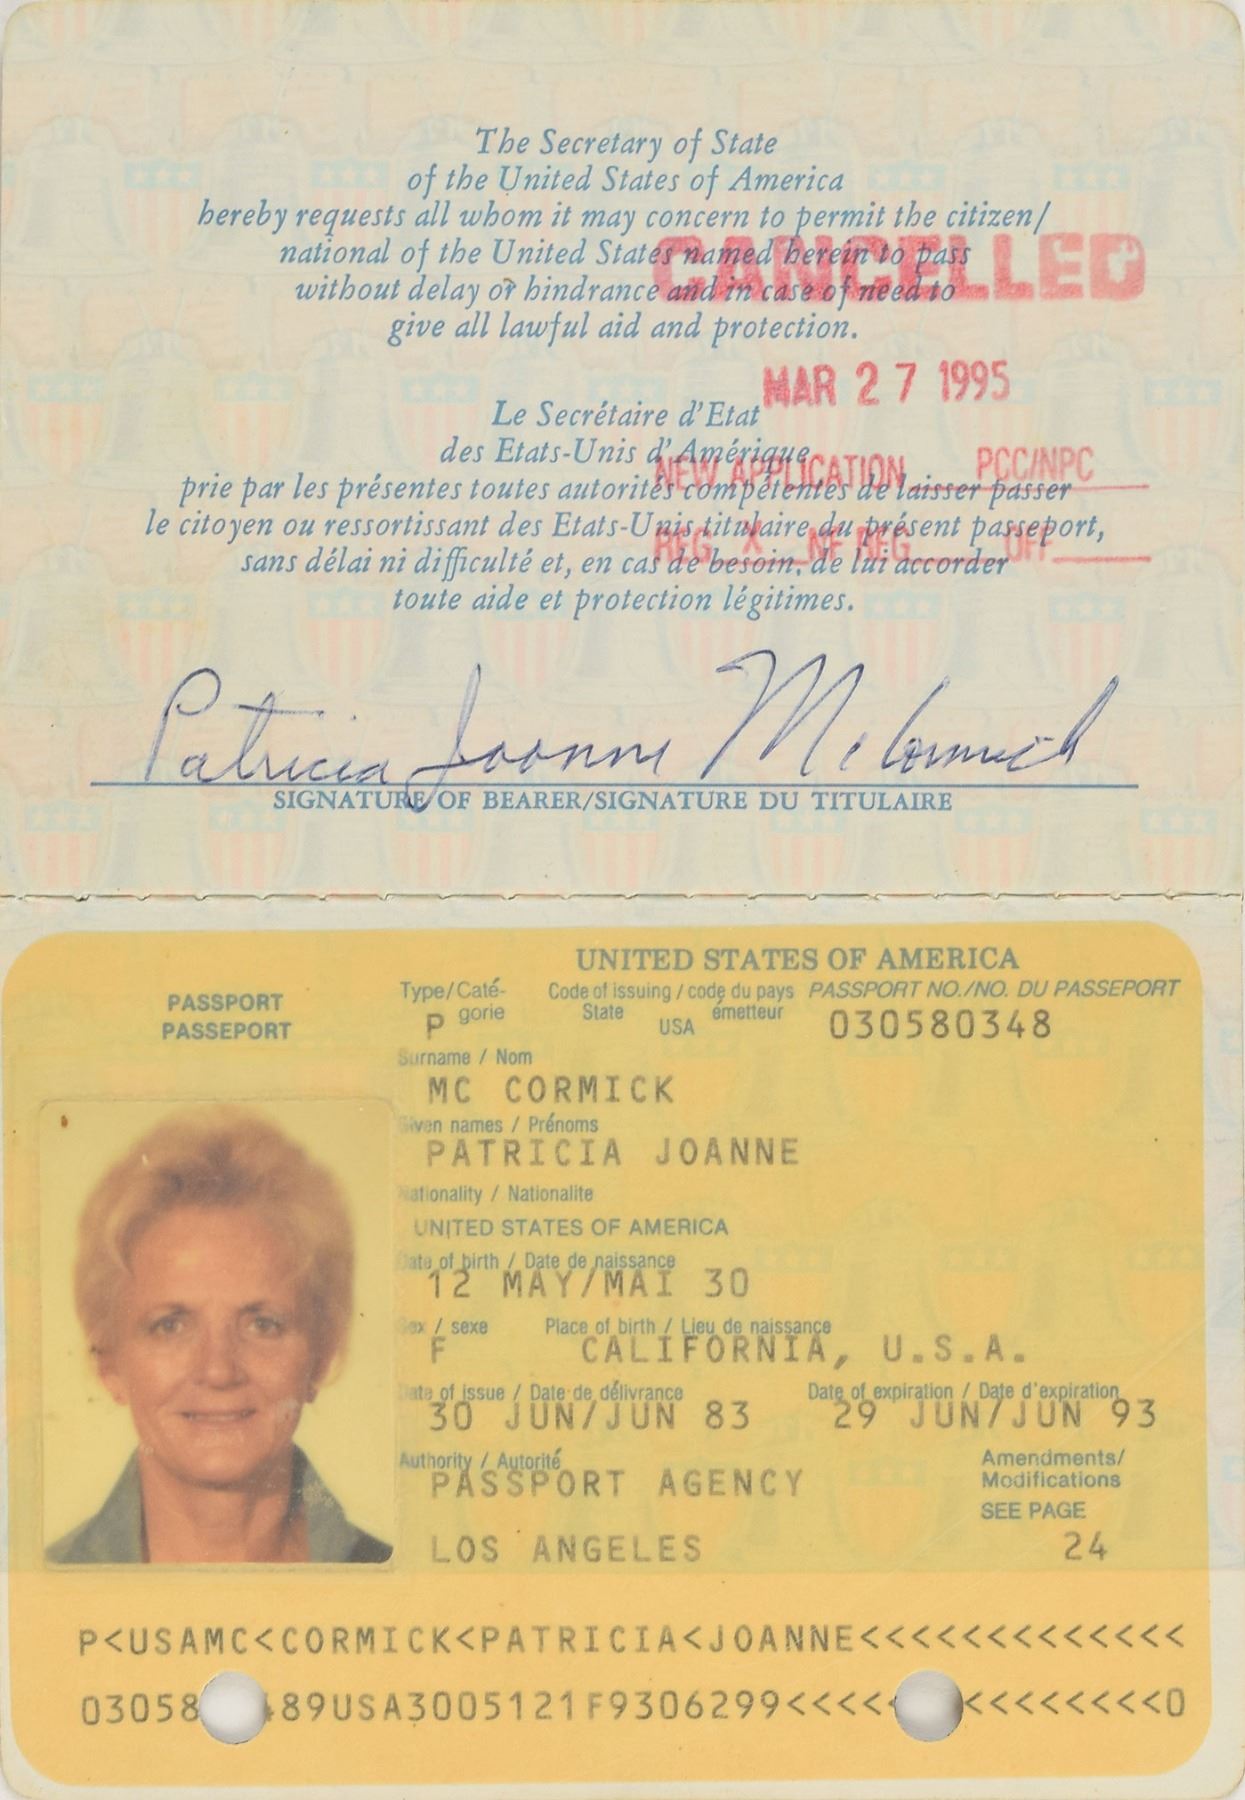 The Secretary of State
of the United States of America
hereby requests all whom it may concern to permit the citizen/
national of the United States named herein to pass
without delay or hindrance and in case of need to
give all lawful aid and protection.
CANCELLED
MAR 27 1995
Le Secrétaire d'Etat
des Etats-Unis d'Amérique
prie par les présentes toutes autorités compétentes de laisser passer
le citoyen ou ressortissant des Etats-Unis titulaire du présent passeport,
sans délai ni difficulté et, en cas de besoin, de lui accorder
toute aide et protection légitimes.
NEW APPLICATION PCC/NPC
REG X NF REG OFF
Patricia Joanne McCormick
SIGNATURE OF BEARER/SIGNATURE DU TITULAIRE
UNITED STATES OF AMERICA
PASSPORT
PASSEPORT
Type/Caté-
gorie
P
Code of issuing / code du pays
State émetteur
USA
PASSPORT NO./NO. DU PASSEPORT
030580348
Surname / Nom
MC CORMICK
Given names / Prénoms
PATRICIA JOANNE
Nationality / Nationalite
UNITED STATES OF AMERICA
Date of birth / Date de naissance
12 MAY/MAI 30
Sex / sexe Place of birth / Lieu de naissance
F CALIFORNIA, U.S.A.
Date of issue / Date de délivrance Date of expiration / Date d'expiration
30 JUN/JUN 83 29 JUN/JUN 93
Authority / Autorité
PASSPORT AGENCY
LOS ANGELES
Amendments/
Modifications
SEE PAGE
24
P<USAMC<CORMICK<PATRICIA<JOANNE<<<<<<<<<<<<<
03058 489USA3005121F9306299<<<< <<<<<<<<0